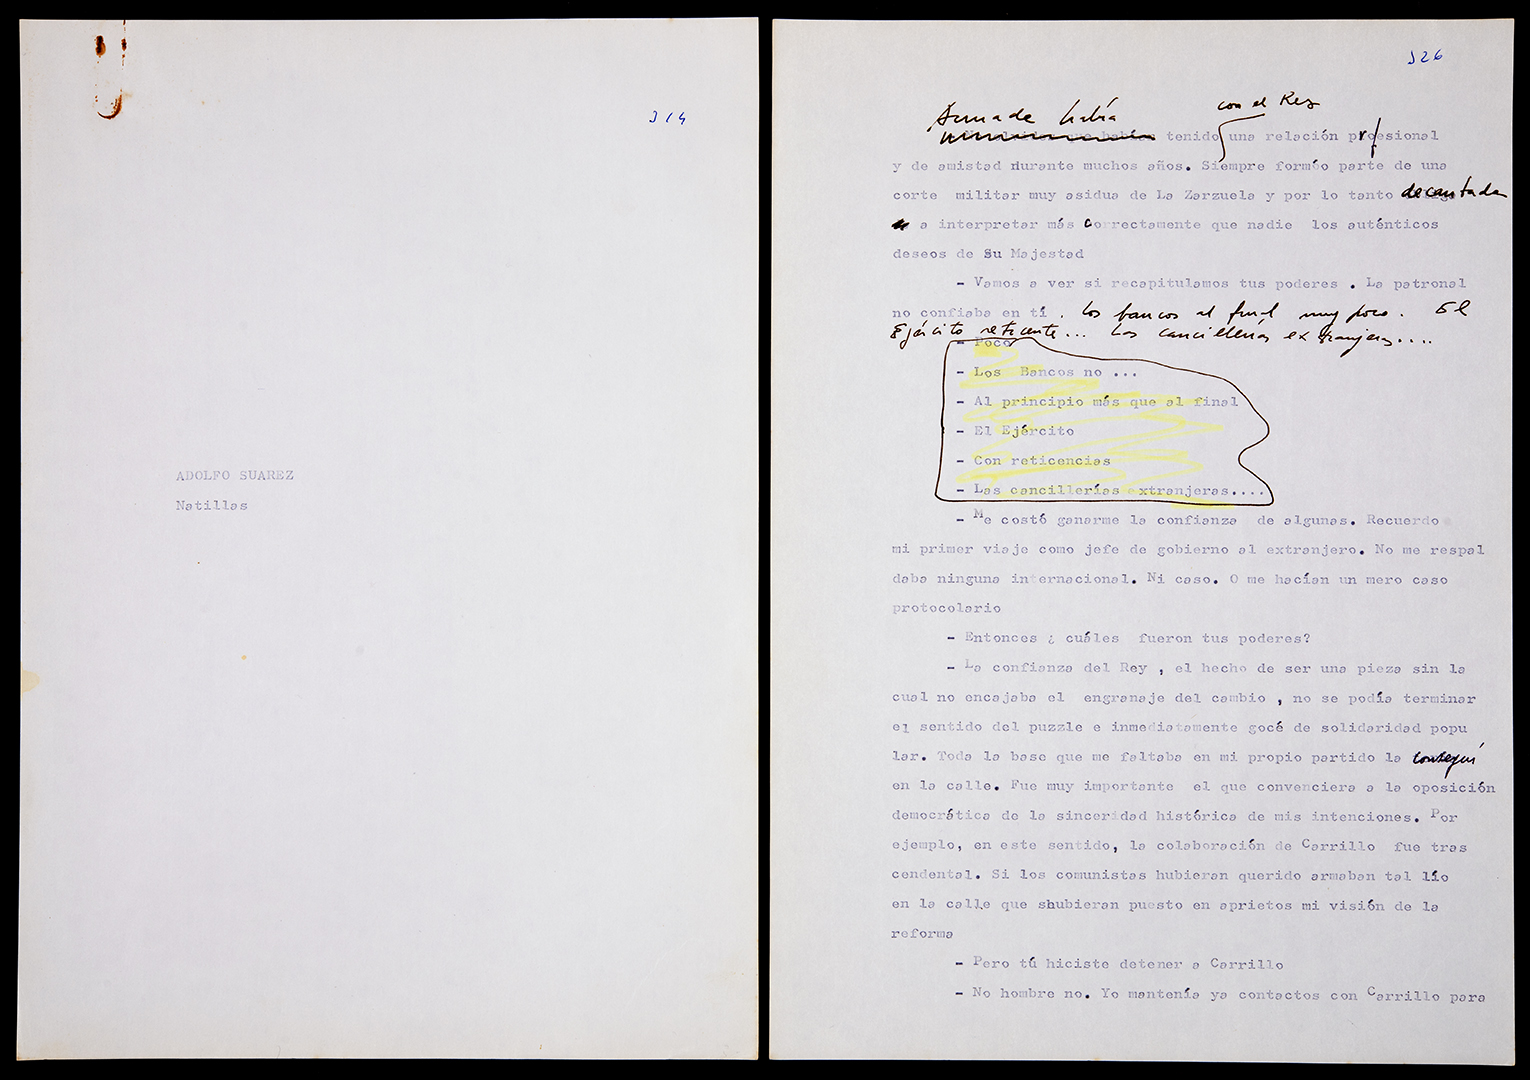 314
ADOLFO SUAREZ
Natillas
326
Armada había
con el Rey
tenido una relación profesional
y de amistad durante muchos años. Siempre formóo parte de una
corte militar muy asidua de La Zarzuela y por lo tanto decantada
a interpretar más correctamente que nadie los auténticos
deseos de Su Majestad
- Vamos a ver si recapitulamos tus poderes . La patronal
no confiaba en tí . Los bancos al final muy poco. El
Ejército reticente... Las cancillerías extranjeras....
- Poco
- Los Bancos no ...
- Al principio más que al final
- El Ejército
- Con reticencias
- Las cancillerías extranjeras....
- Me costó ganarme la confianza de algunas. Recuerdo
mi primer viaje como jefe de gobierno al extranjero. No me respal
daba ninguna internacional. Ni caso. O me hacían un mero caso
protocolario
- Entonces ¿ cuáles fueron tus poderes?
- La confianza del Rey , el hecho de ser una pieza sin la
cual no encajaba el engranaje del cambio , no se podía terminar
el sentido del puzzle e inmediatamente gocé de solidaridad popu
lar. Toda la base que me faltaba en mi propio partido la conseguí
en la calle. Fue muy importante el que convenciera a la oposición
democrática de la sinceridad histórica de mis intenciones. Por
ejemplo, en este sentido, la colaboración de Carrillo fue tras
cendental. Si los comunistas hubieran querido armaban tal lío
en la calle que shubieran puesto en aprietos mi visión de la
reforma
- Pero tú hiciste detener a Carrillo
- No hombre no. Yo mantenía ya contactos con Carrillo para